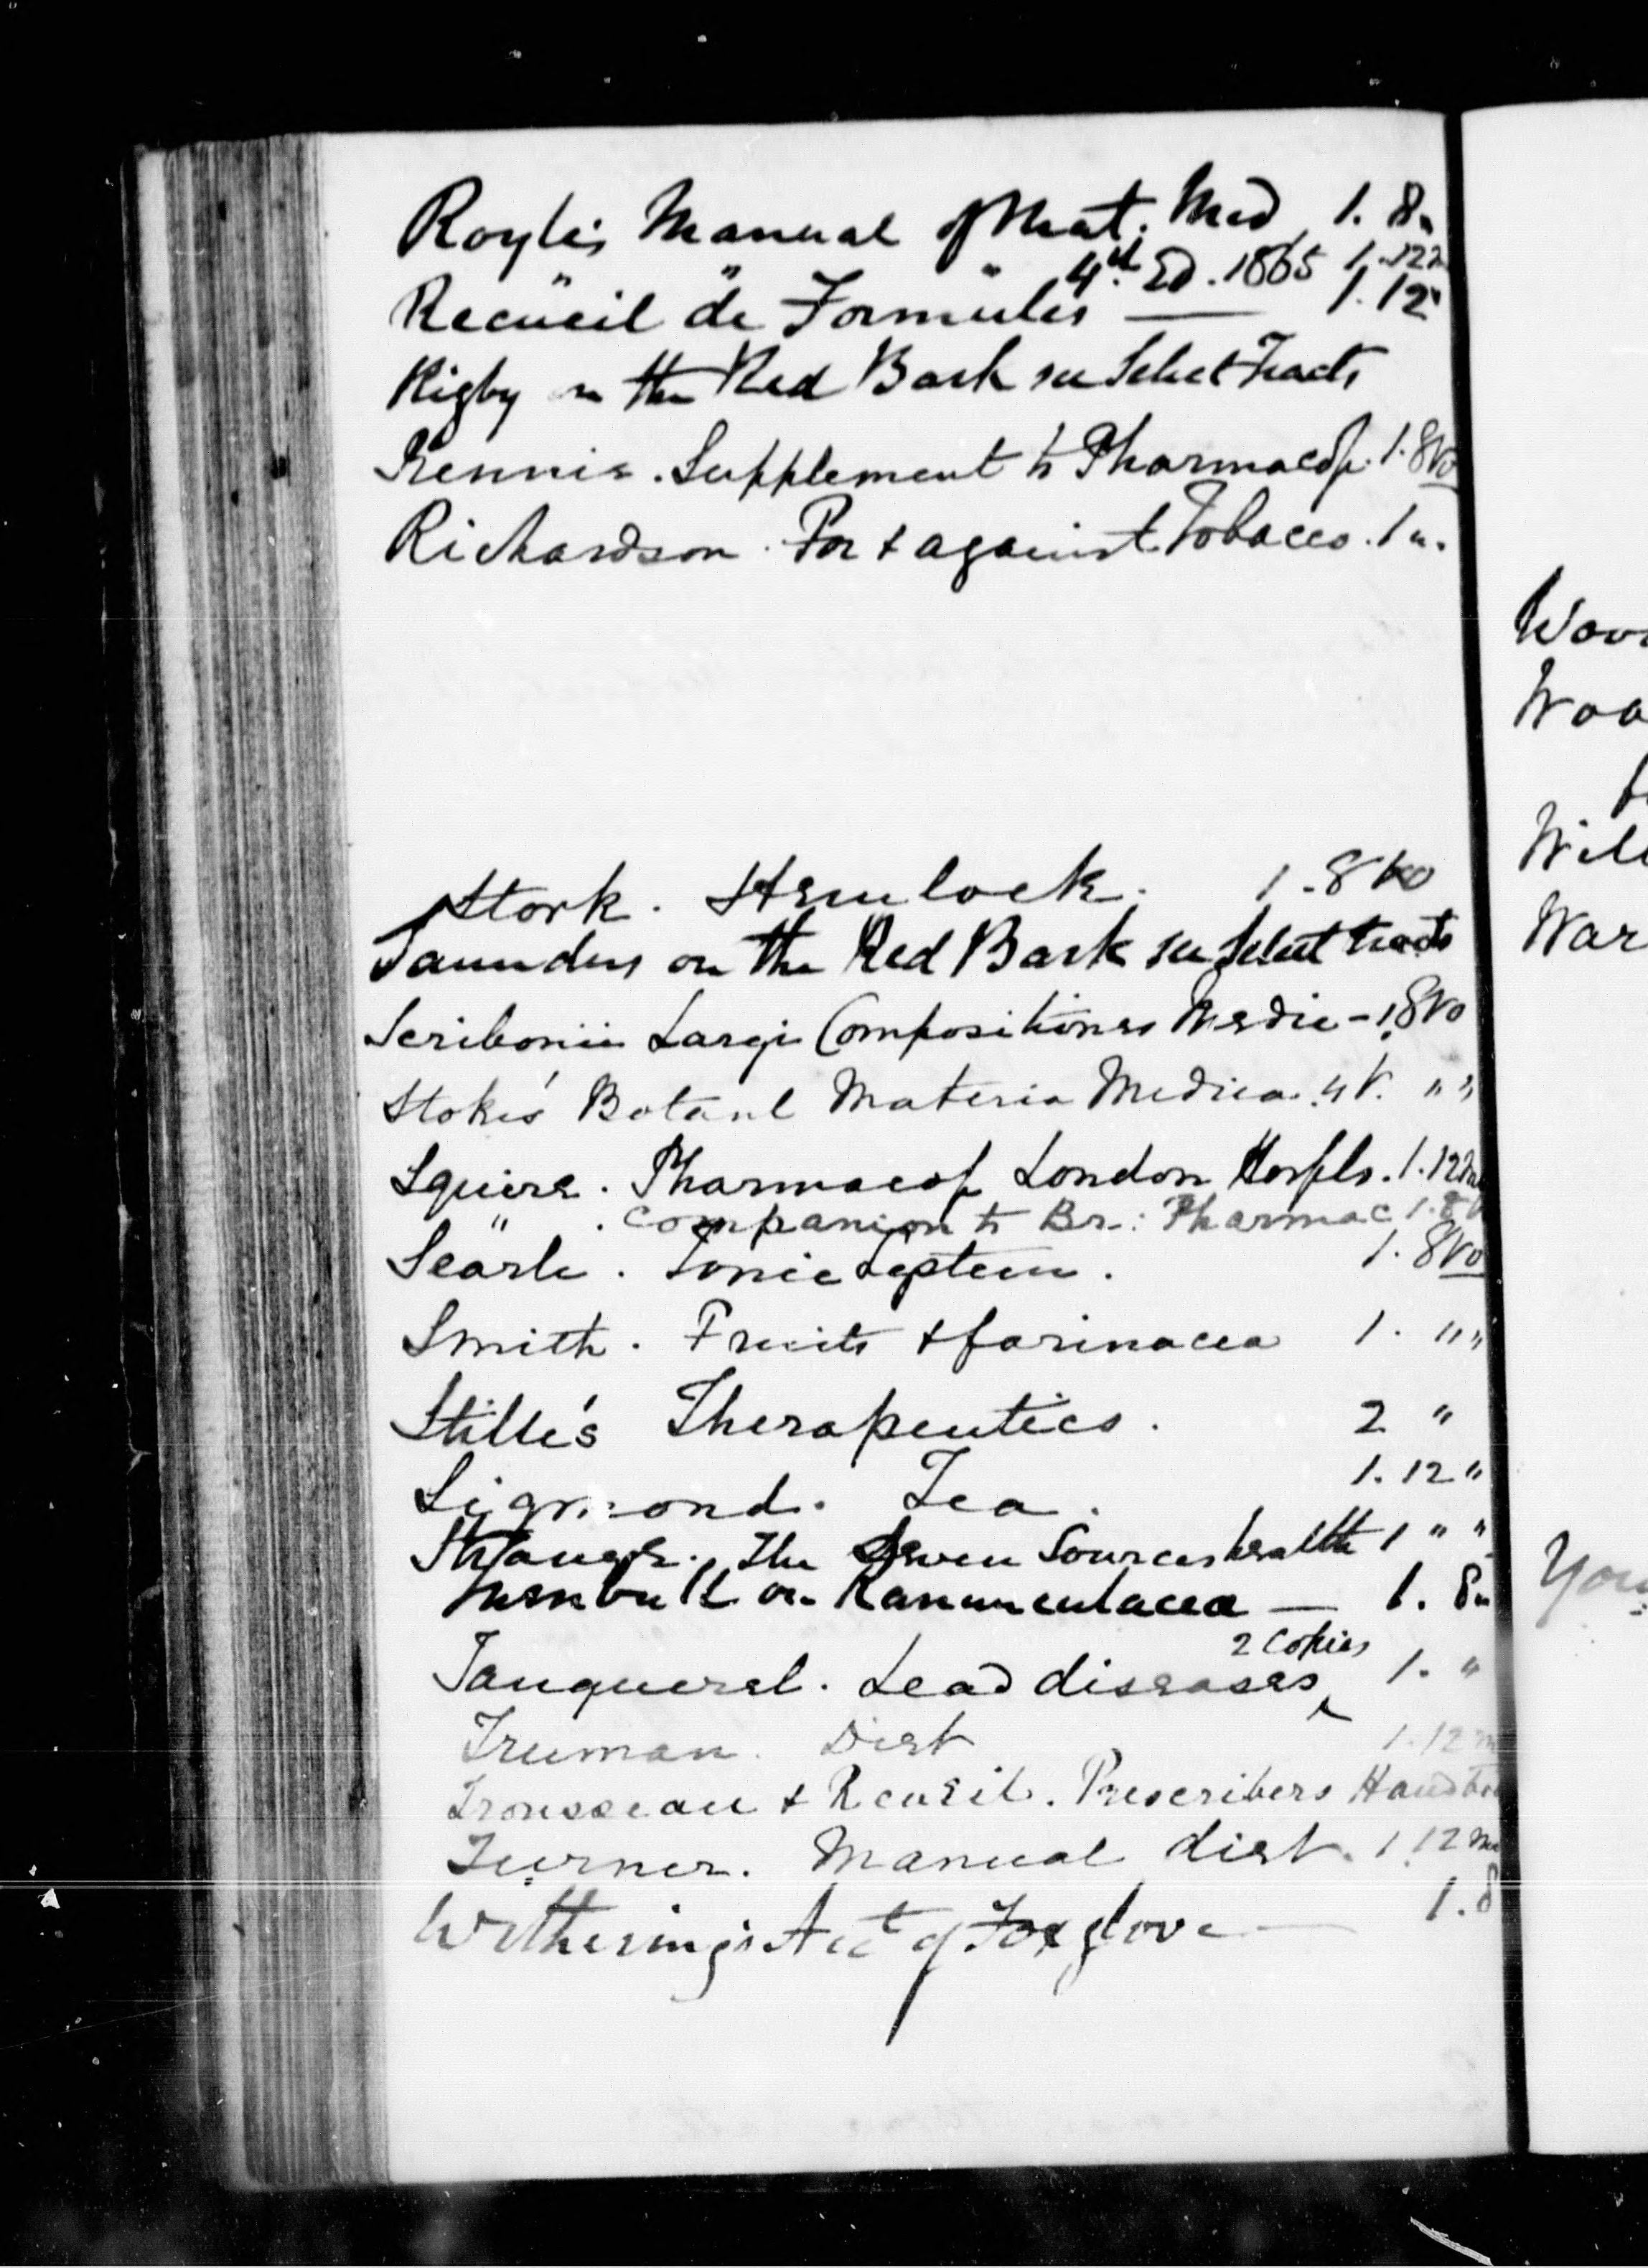 Royle's Manual of Mat. Med 1. 8"
" " 4th Ed. 1865 1. 12m
Recüeil de Formüles — 1. 12"
Rigby on the Red Bark see Select Tracts
Rennie. Supplement to Pharmacop. 1. 8vo
Richardson. For & against Tobacco. 1 ".
Stork. Hemlock. 1. 8vo
Saunders on the Red Bark see Select tracts
Scribonii Largi Compositiones Medic - 1. 8vo
Stokes' Botanl Materia Medica. 4 V. " "
Squire. Pharmacop London Hospls. 1. 12m
" . Companion to Br: Pharmac 1. 8v
Searle. Tonic System. 1. 8vo
Smith. Fruits & farinacea 1. " "
Stillé's Therapeutics. 2 "
Sigmond. Tea. 1. 12 "
Strange. The Seven Sources health 1 " "
Turnbull on Ranunculacea — 1. 8"
2 Copies
Tanquerel. Lead diseases 1. "
Truman. Diet 1. 12m
Trousseau & Reveil. Prescribers Handboo
Turner. Manual diet. 1 12mo
Withering's Acct of Foxglove — 1. 8
Woo
Will
War
You